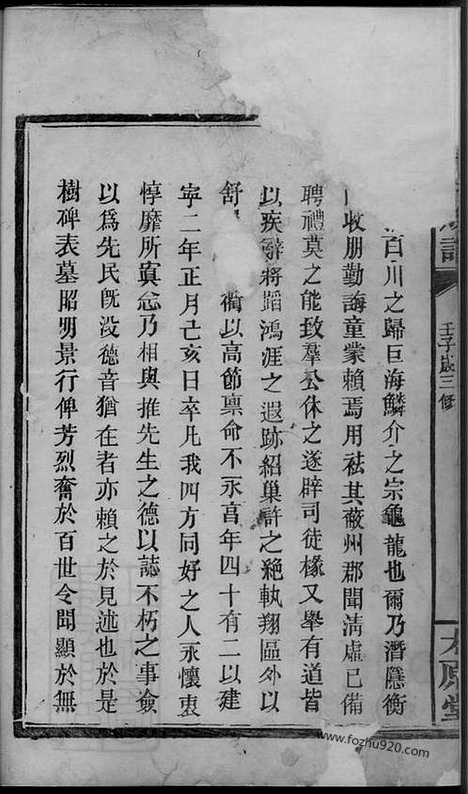 百川之歸巨海鱗介之宗龜龍也爾乃潛隱衡
收朋勤誨童蒙賴焉用祛其蔽州郡聞清虛已備
聘禮莫之能致羣公休之遂辟司徒椽又舉有道皆
以疾辭將蹈鴻涯之遐跡紹巢許之絕執翔區外以
舒 衢以高節稟命不永亯年四十有二以建
寧二年正月己亥日卒凡我四方同好之人永懷衷
惇靡所寘念乃相與推先生之德以誌不朽之事僉
以爲先民旣没德音猶在者亦賴之於見述也於是
樹碑表墓昭明景行俾芳烈奮於百世令問顯於無
譜
壬子歲三修
太原堂
www.fozhu920.com